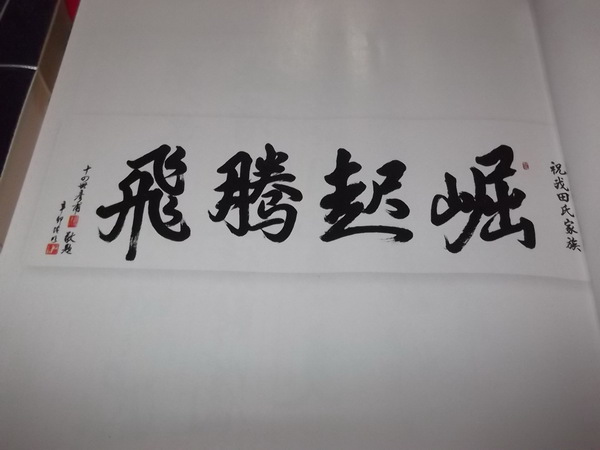 祝我田氏家族
崛起腾飛
十四世
敬题
辛卯